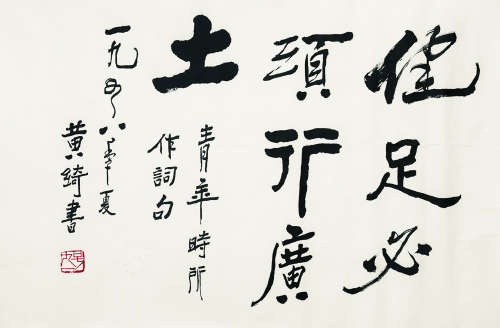 健足必
須行廣
土
青年時所
作詞句
一九五八年夏
黄綺書